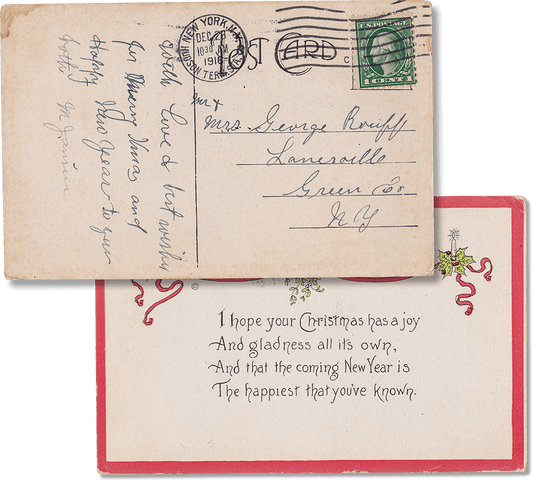 NEW YORK, N.Y.
DEC 23
1916
HUDSON TERM. STA.
POST CARD
U.S. POSTAGE
With love & best wishes
for Merry Xmas and
Happy New Year to you
both
Mr +
Mrs George Rouff
Lanesville
Green Co.
N Y
I hope your Christmas has a joy
And gladness all it's own,
And that the coming New Year is
The happiest that you've known.